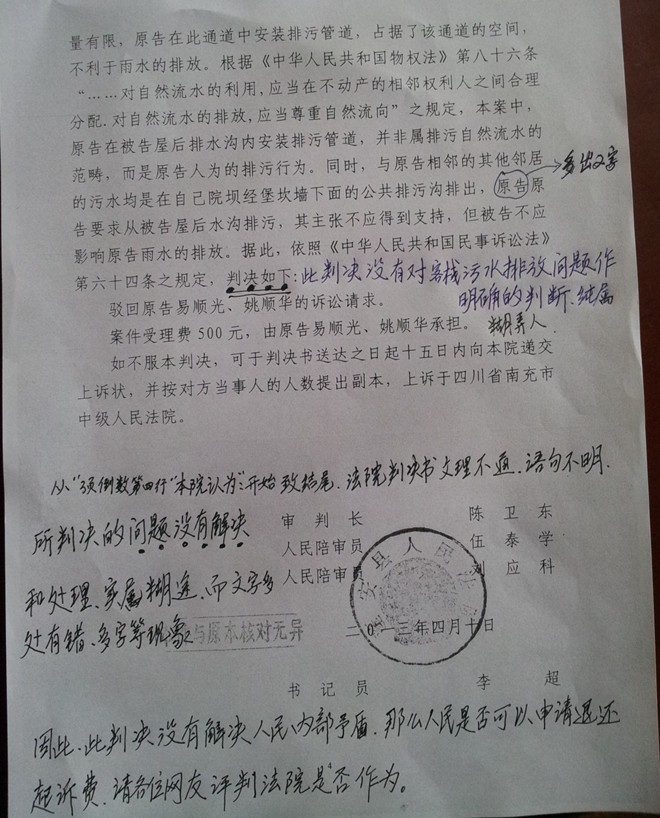 量有限，原告在此通道中安装排污管道，占据了该通道的空间，
不利于雨水的排放。根据《中华人民共和国物权法》第八十六条
“……对自然流水的利用，应当在不动产的相邻权利人之间合理
分配．对自然流水的排放，应当尊重自然流向”之规定，本案中，
原告在被告屋后排水沟内安装排污管道，并非属排污自然流水的
范畴，而是原告人为的排污行为。同时，与原告相邻的其他邻居
的污水均是在自己院坝经堡坎墙下面的公共排污沟排出，原告原
多出2字
告要求从被告屋后水沟排污，其主张不应得到支持，但被告不应
影响原告雨水的排放。据此，依照《中华人民共和国民事诉讼法》
第六十四条之规定，判决如下：此判决没有对客栈污水排放问题作
明确的判断、纯属
驳回原告易顺光、姚顺华的诉讼请求。
糊弄人．
案件受理费500元，由原告易顺光、姚顺华承担。
如不服本判决，可于判决书送达之日起十五日内向本院递交
上诉状，并按对方当事人的人数提出副本，上诉于四川省南充市
中级人民法院。
从“3页倒数第四行“本院认为”开始致结尾、法院判决书文理不通、语句不明．
所判决的问题没有解决
审 判 长 陈 卫 东
人民陪审员 伍 泰 学
和处理、实属糊涂、而文字多
人民陪审员 刘 应 科
处有错、多字等现象
与原本核对无异
二〇一三年四月十日
安县人民法
书 记 员 李 超
因此、此判决没有解决人民内部矛盾、那么人民是否可以申请退还
起诉费、请各位网友评判法院是否作为。